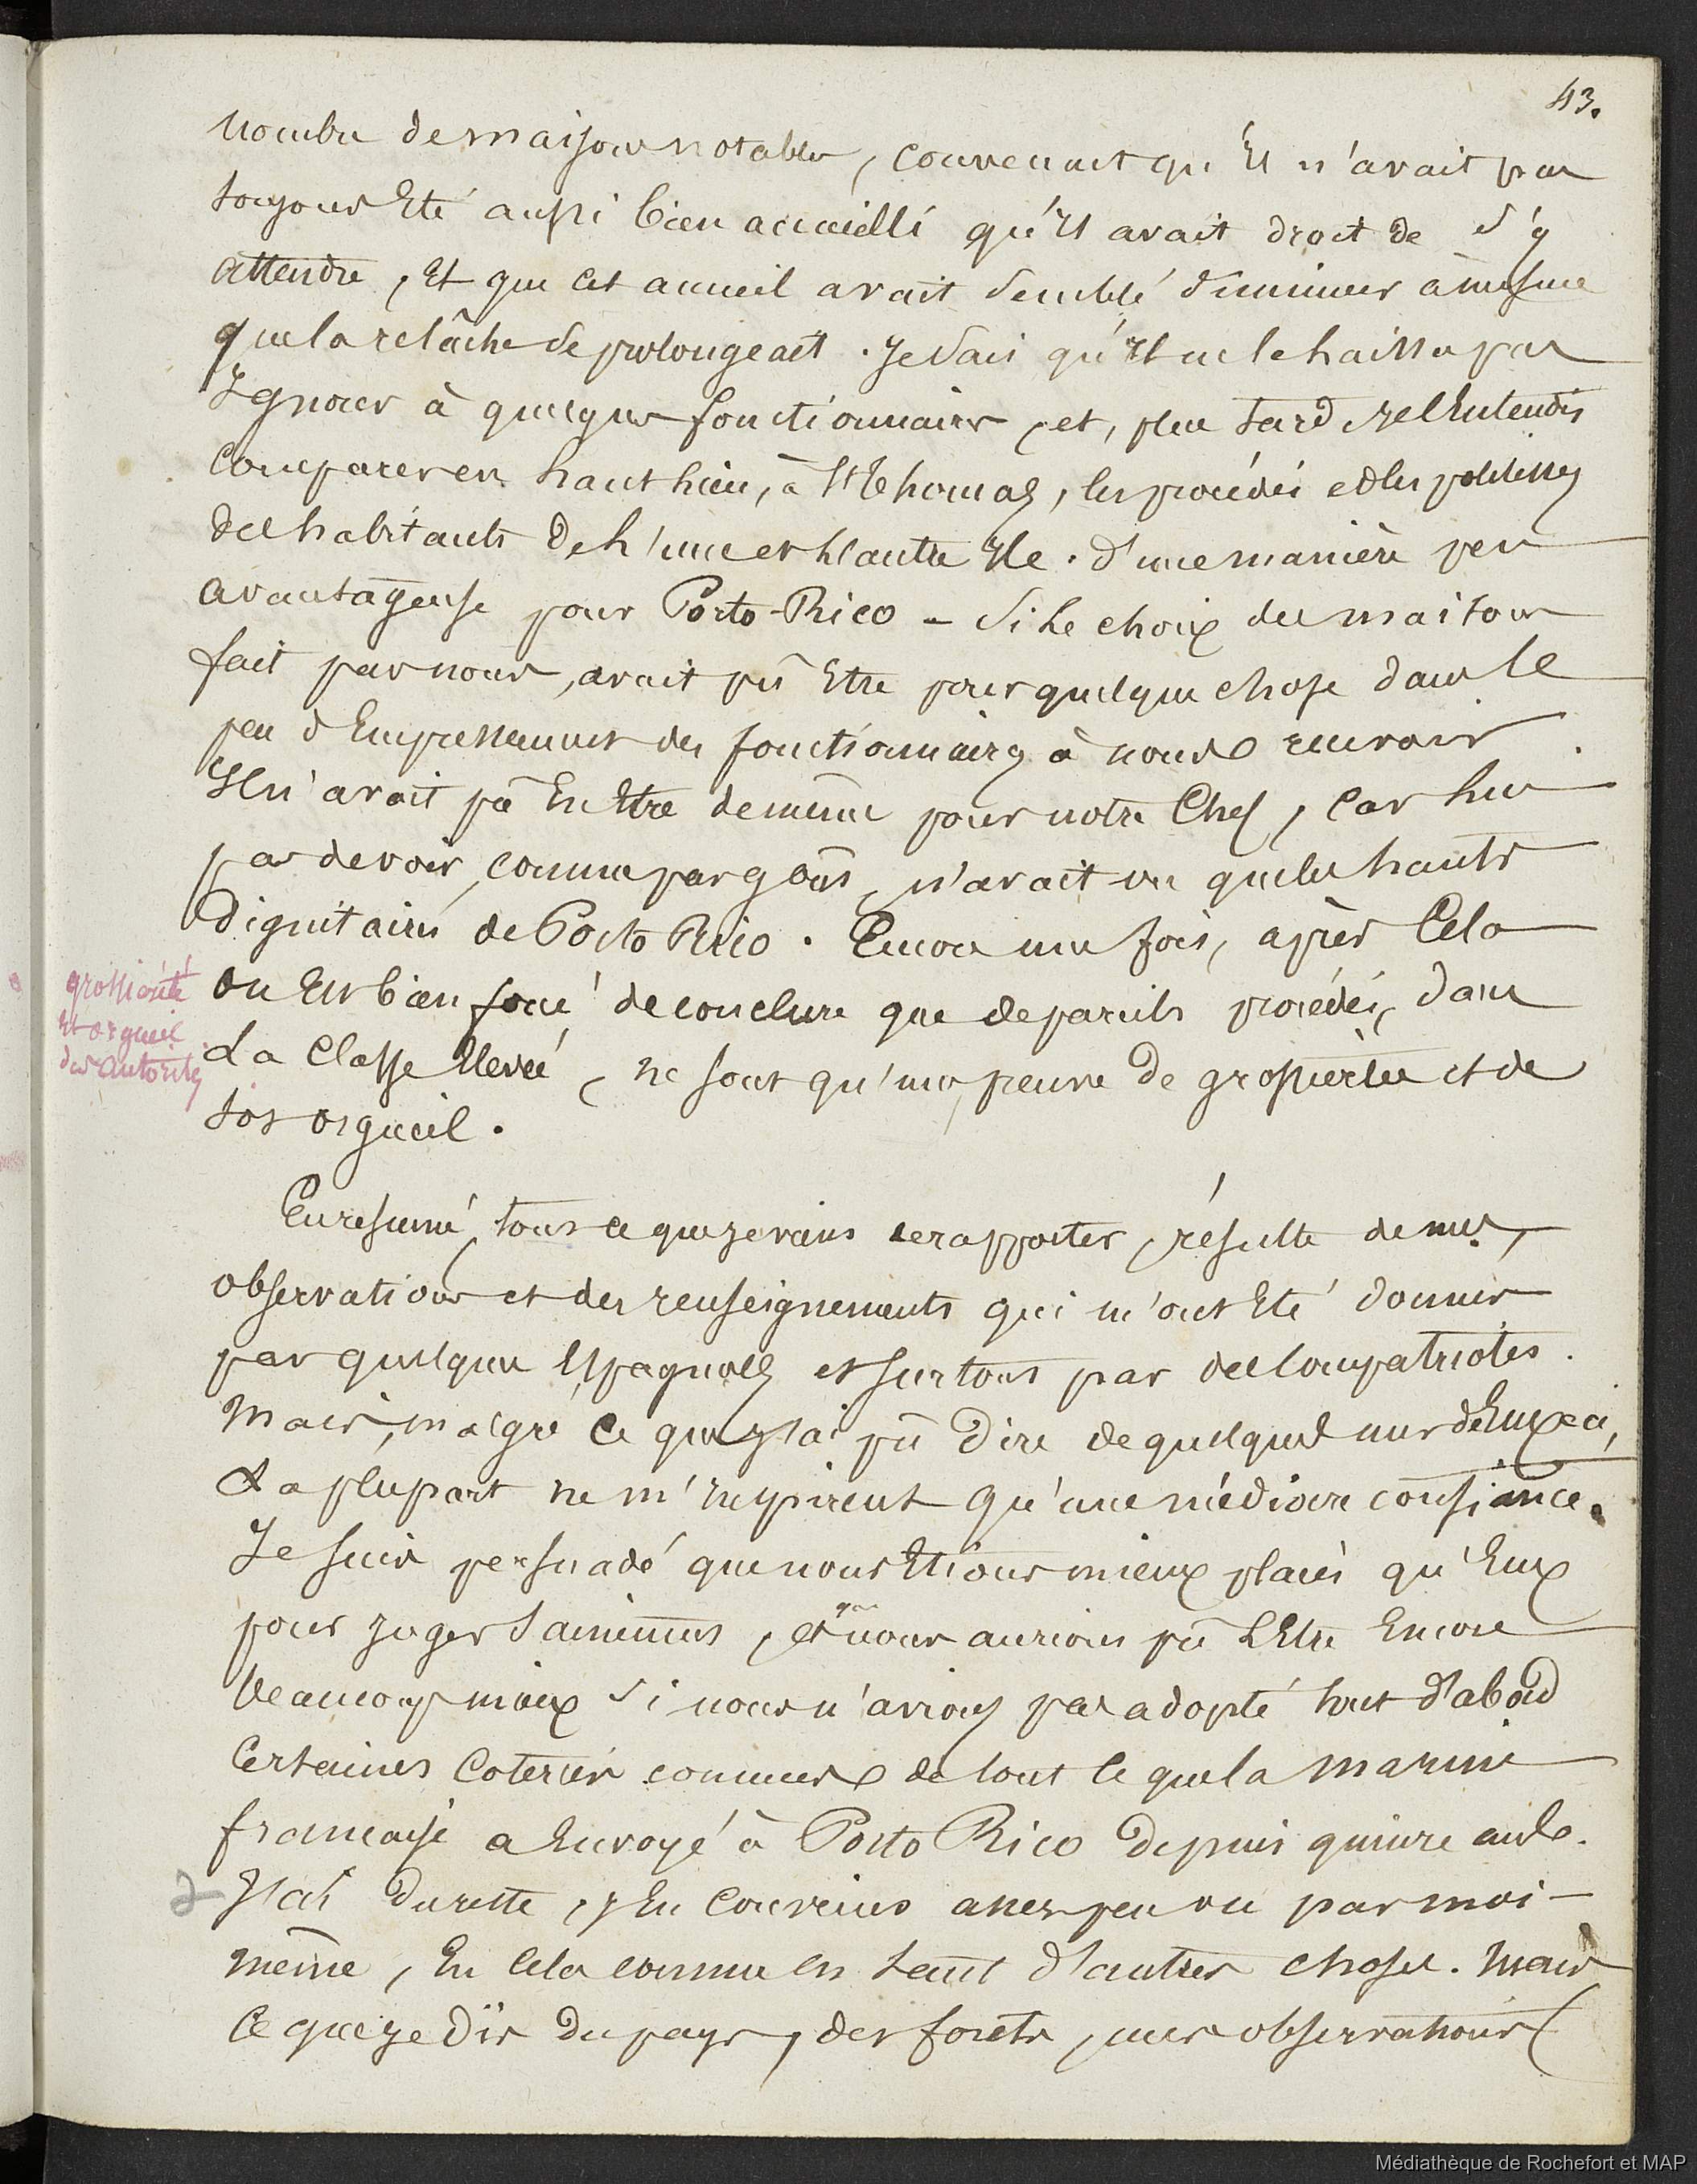 43.
nombre de maisons notables, convenait qu'Il n'avait pas
toujours Eté aussi bien accueilli qu'Il avait droit de s'y
attendre, Et que cet accueil avait semblé diminuer à mesure
que la relâche se prolongeait. Je sais qu'Il ne le laissa pas
Ignorer à quelques fonctionnaires, et, plus tard je l'Entendis
comparer en haut lieu, à St Thomas, les procédés et les politesses
des habitants de l'une et l'autre Ile. d'une manière peu
avantageuse pour Porto-Rico - Si le choix des maisons
fait par nous, avait pû Etre pour quelque chose dans le
peu d'Empressement des fonctionnaires à nous recevoir
Il n'avait pû En Etre de même pour notre Chef, Car lui
par devoir, comme par goût, n'avait vu que les hauts
Dignitaires de Porto Rico. Encore une fois, après Cela
on Est bien forcé de conclure que de pareils procédés, dans
grossièreté
Et orgueil
des autorités
La Classe Elevée, ne sont qu'une preuve de grossièretée et de
sot orgueil.
En resumé, tout ce que je viens de rapporter, résulte de mes
observations et des renseignements qui m'ont Eté donnés
par quelques Espagnols et surtout par des Compatriotes.
Mais, malgré Ce que j'ai pû dire de quelques uns d'Eux ci,
La plupart ne m'Inspirent qu'une médiocre confiance.
Je suis persuadé que nous Etions mieux placés qu'Eux
pour juger sainement, et que nous aurions pû L'Etre Encore
beaucoup mieux si nous n'avions pas adopté tout d'abord
Certaines Coteries connues de tout Ce que la marine
francaise a Envoyé à Porto Rico depuis quinze ans.
J'ai du reste, j'En Conviens assez peu vu par moi-
même, En Cela comme en tant d'autres choses. Mais
Ce que je dis du pays, des forêts, mes observations
Médiathèque de Rochefort et MAP